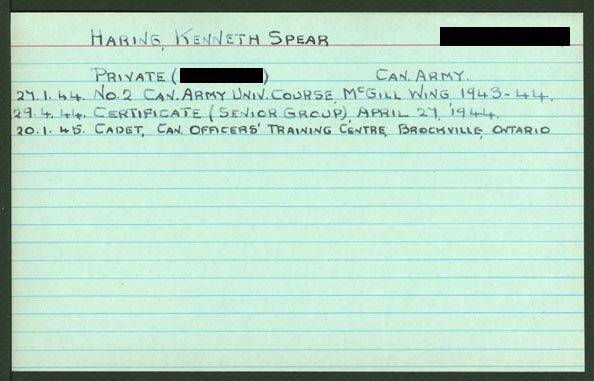 HARING, KENNETH SPEAR
PRIVATE ( ) CAN. ARMY.
27.1.44. NO. 2 CAN. ARMY UNIV. COURSE, MCGILL WING 1943-44.
29.4.44. CERTIFICATE (SENIOR GROUP), APRIL 27, 1944.
20.1.45. CADET, CAN. OFFICERS' TRAINING CENTRE, BROCKVILLE, ONTARIO